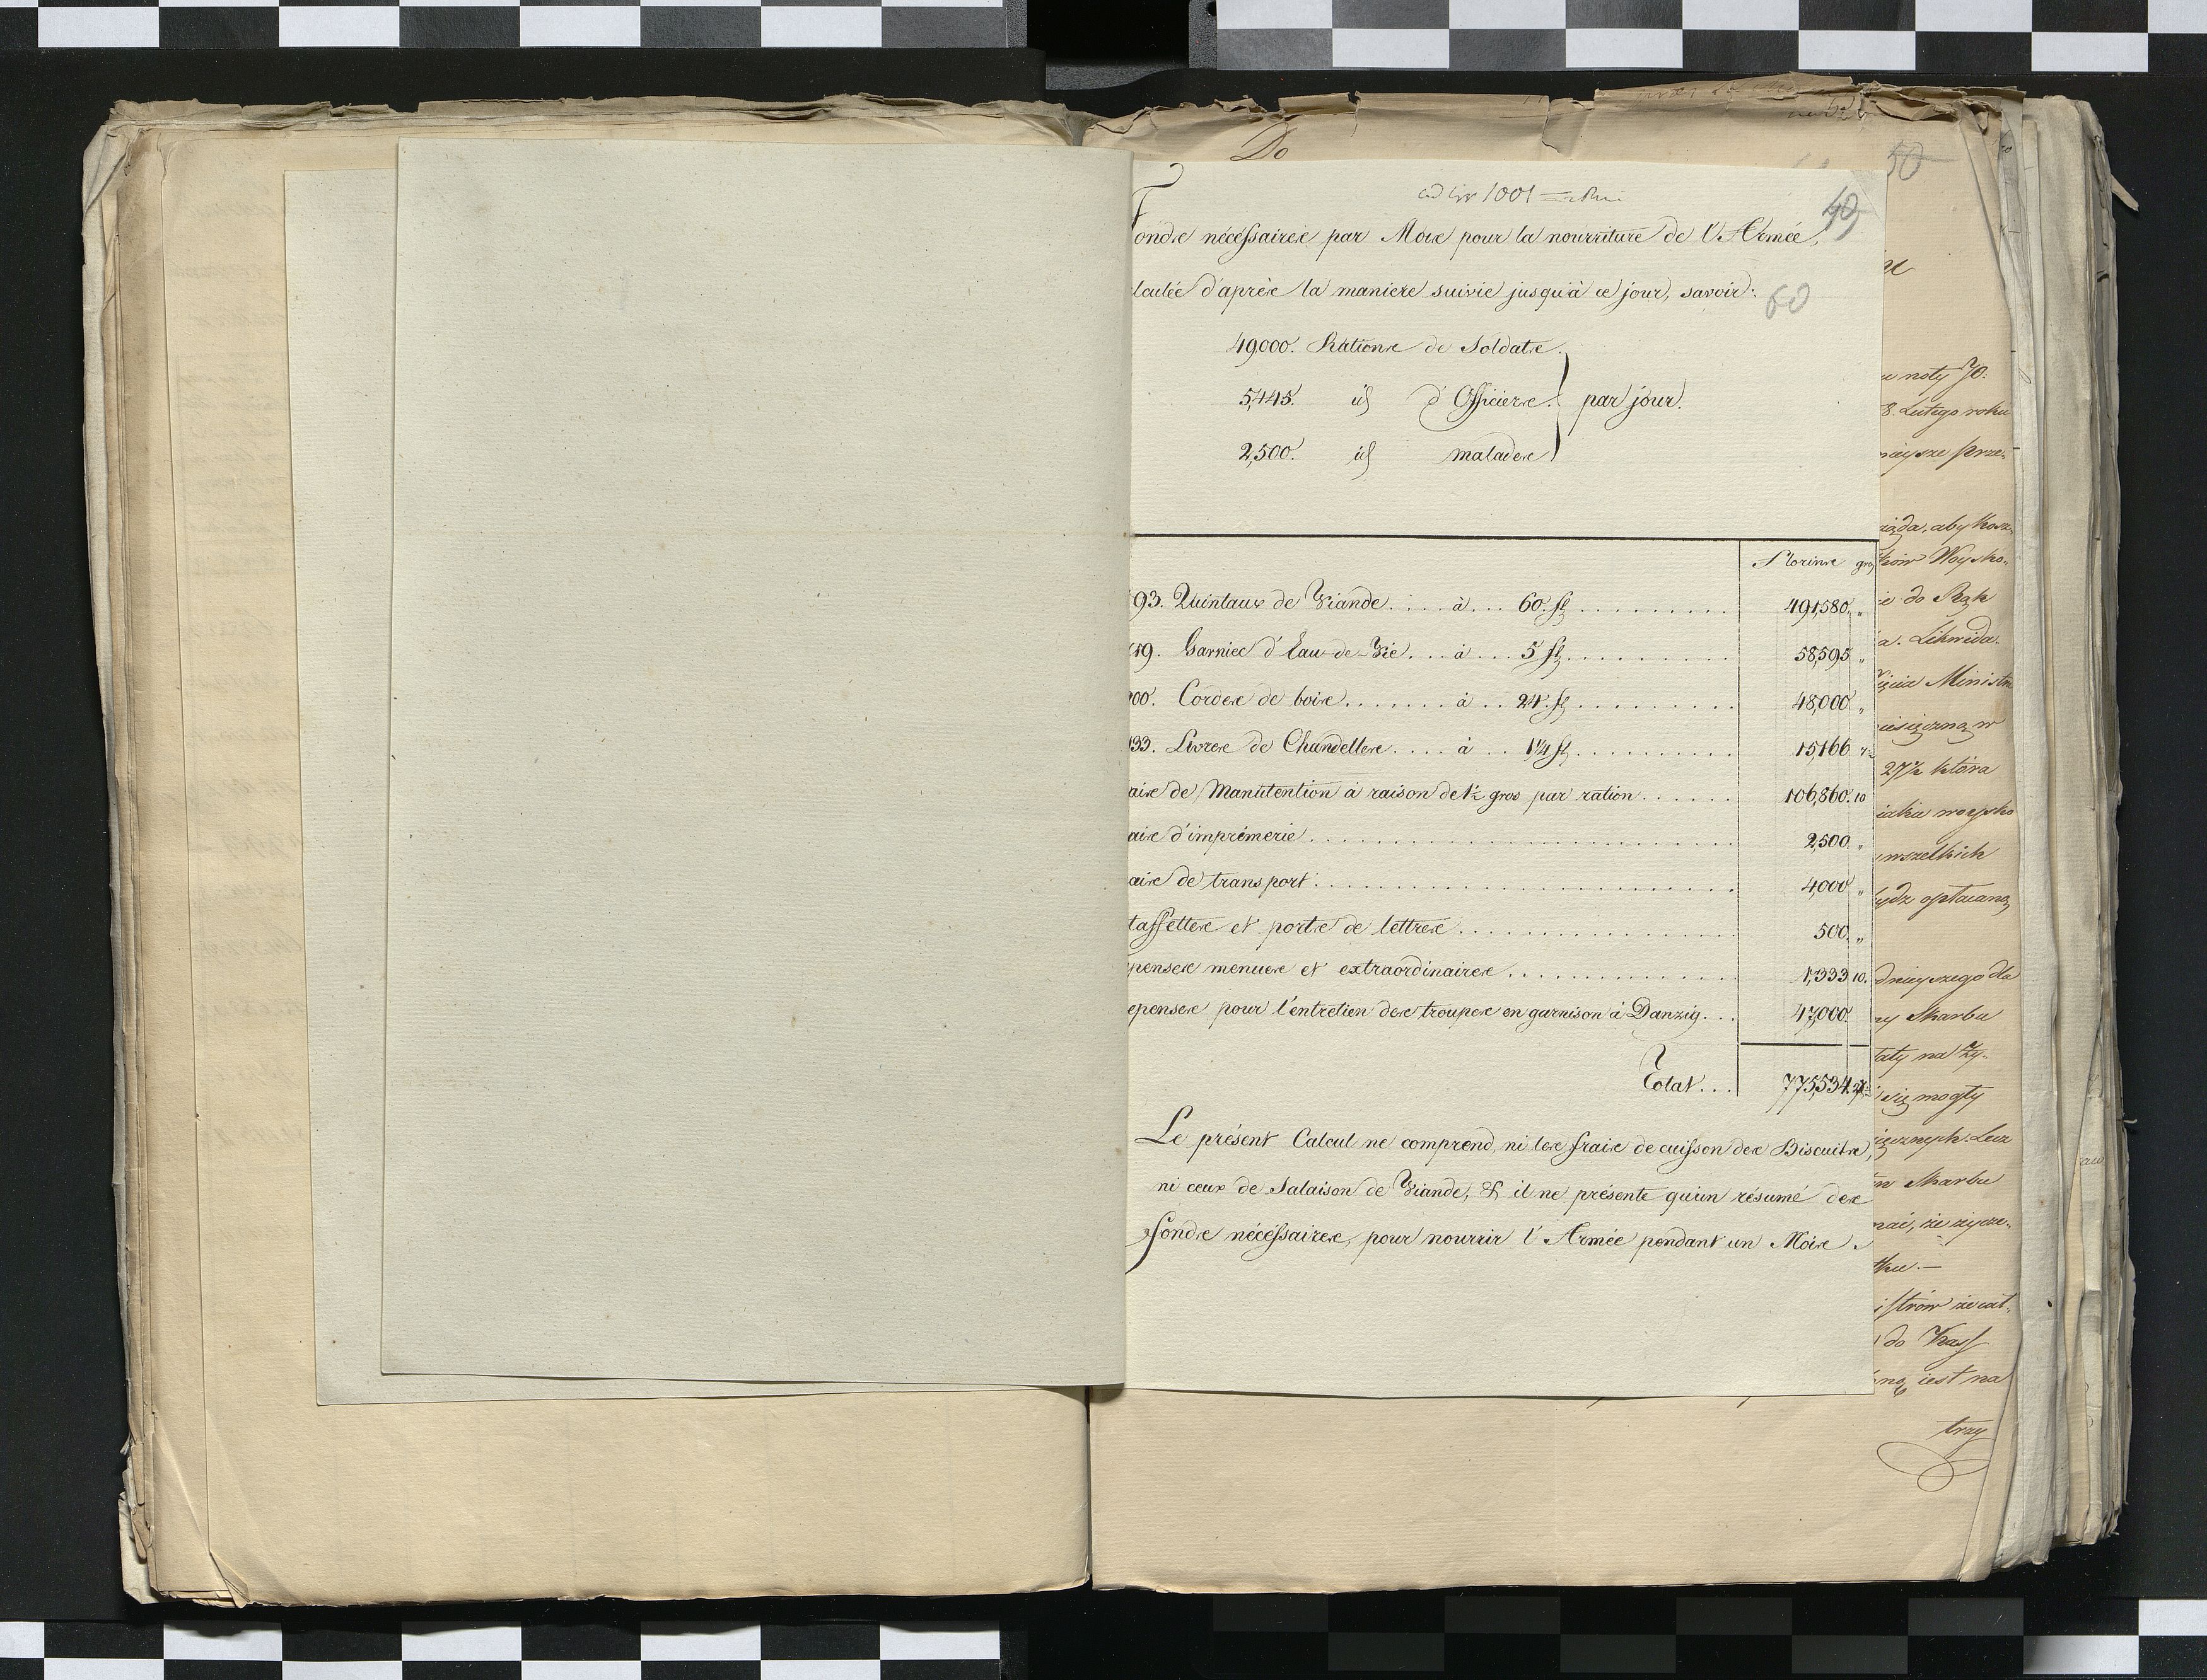 Do
50
49
Fonds nécéssaires par Mois pour la nourriture de l'Armée,
lculée d'après la maniere suivie jusqu'à ce jour, savoir:
60
49,000. Rations de Soldats.
5,445. id d'Officiers. par jour.
2,500. id malades
Florins gros
93. Quintaux de Viande .... à ... 60. fl ........ 491,580. "
719. Garniec d'Eau-de-Vie ... à ... 5 fl ........ 58,595 "
000. Cordes de bois ....... à .. 24. fl ........ 48,000 "
133. Livres de Chandelles .... à ... 1¼ fl ........ 15,166 7½
ais de Manutention à raison de 1½ gros par ration ...... 106,860. 10
ais d'imprimerie ........ 2,500. "
ais de transport ........ 4,000 "
taffettes et ports de lettres ........ 500. "
penses menues et extraordinaires ........ 1,333 10.
epenses pour l'entretien des troupes en garnison à Danzig ... 47,000.
Total ... 775,534. 27½
Le présent Calcul ne comprend, ni les frais de cuisson des Biscuits,
ni ceux de Salaison de Viande, & il ne présente qu'un résumé des
fonds nécéssaires, pour nourrir l'Armée pendant un Mois.
noty JO.
8. Lutego roku
prze-
aby
Woysko-
ie do Rąk
a. Likwida-
Ministra
w
27½ która
woysko
wszelkich
opłacaną
dla
Skarbu
na
się mogły
Lecz
Skarbu
że
do Kass
iest na
trzy